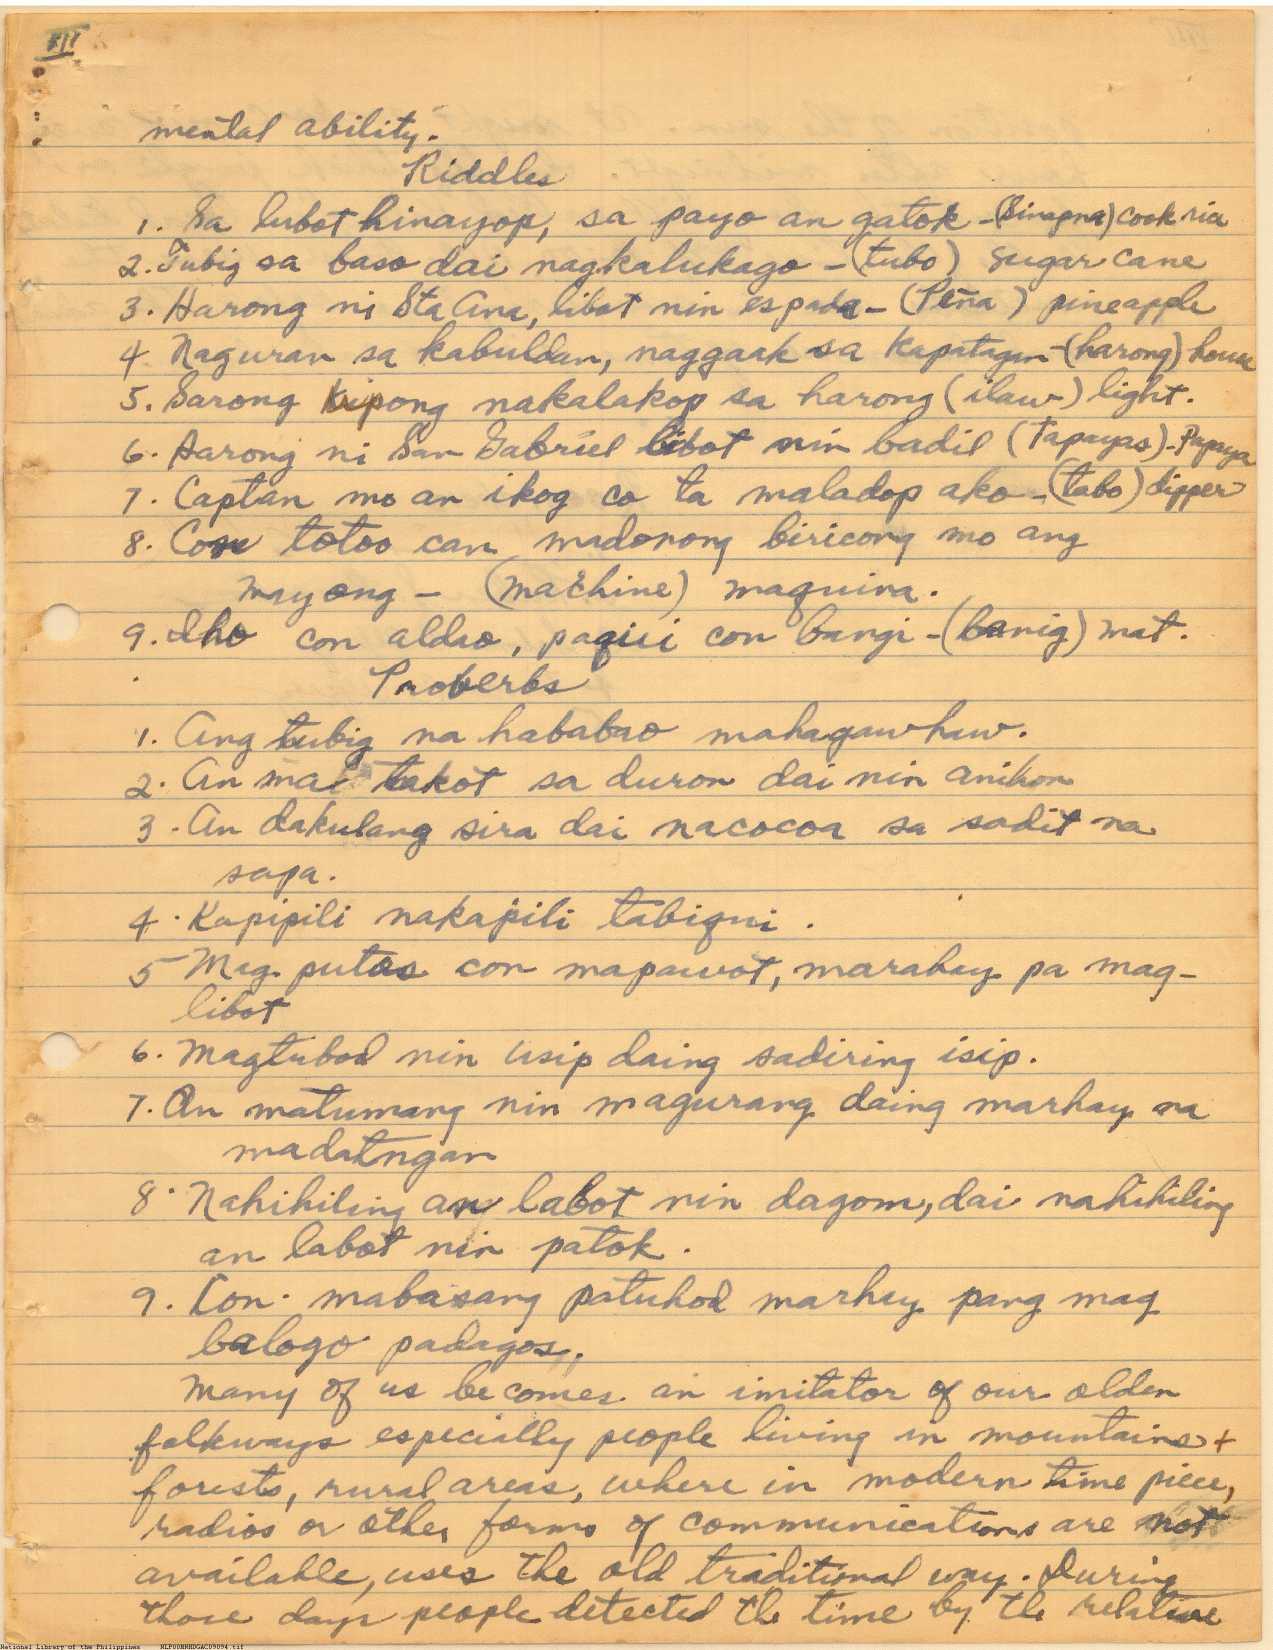 VII
mental ability.
Riddles
1. Sa lubot hinayop, sa payo an gatok - (Sinapna) cook rice
2. Tubig sa baso dai nagkalukago - (tubo) sugar cane
3. Harong ni Sta Ana, libot nin espada - (Peña) pineapple
4. Naguran sa kabuldan, naggaak sa kapatagan - (harong) house
5. Sarong kipong nakalakop sa harong (ilaw) light.
6. Harong ni San Gabriel libot nin badil (tapayas) - Papaya
7. Captan mo an ikog co ta maladop ako - (tabo) dipper
8. totoo can madonong biricong mo ang
mayong - (machine) maquina.
9. Iho con aldao, paqui con bangi - (banig) mat.
Proverbs
1. Ang tubig na hababao mahagawhaw.
2. An mai takot sa duron dai nin anihon
3. An dakulang sira dai nacocoa sa sadit na
sapa.
4. Kapipili nakapili tabiqui.
5 Mag putos con mapawot, marahay pa mag-
libot
6. Magtubod nin usip daing sadiring isip.
7. An matumang nin magurang daing marhay na
madatngan
8. Nahihiling an labot nin dagom, dai nahihiling
an labot nin patok.
9. Kon mabasang patuhod marhay pang mag
balogo padagos.
Many of us becomes an imitator of our olden
folkways especially people living in mountains +
forests, rural areas, where in modern time piece,
radios or other forms of communications are not
available, uses the old traditional way. During
those days people detected the time by the relative
National Library of the Philippines NLP00HRHDGAC09094.tif